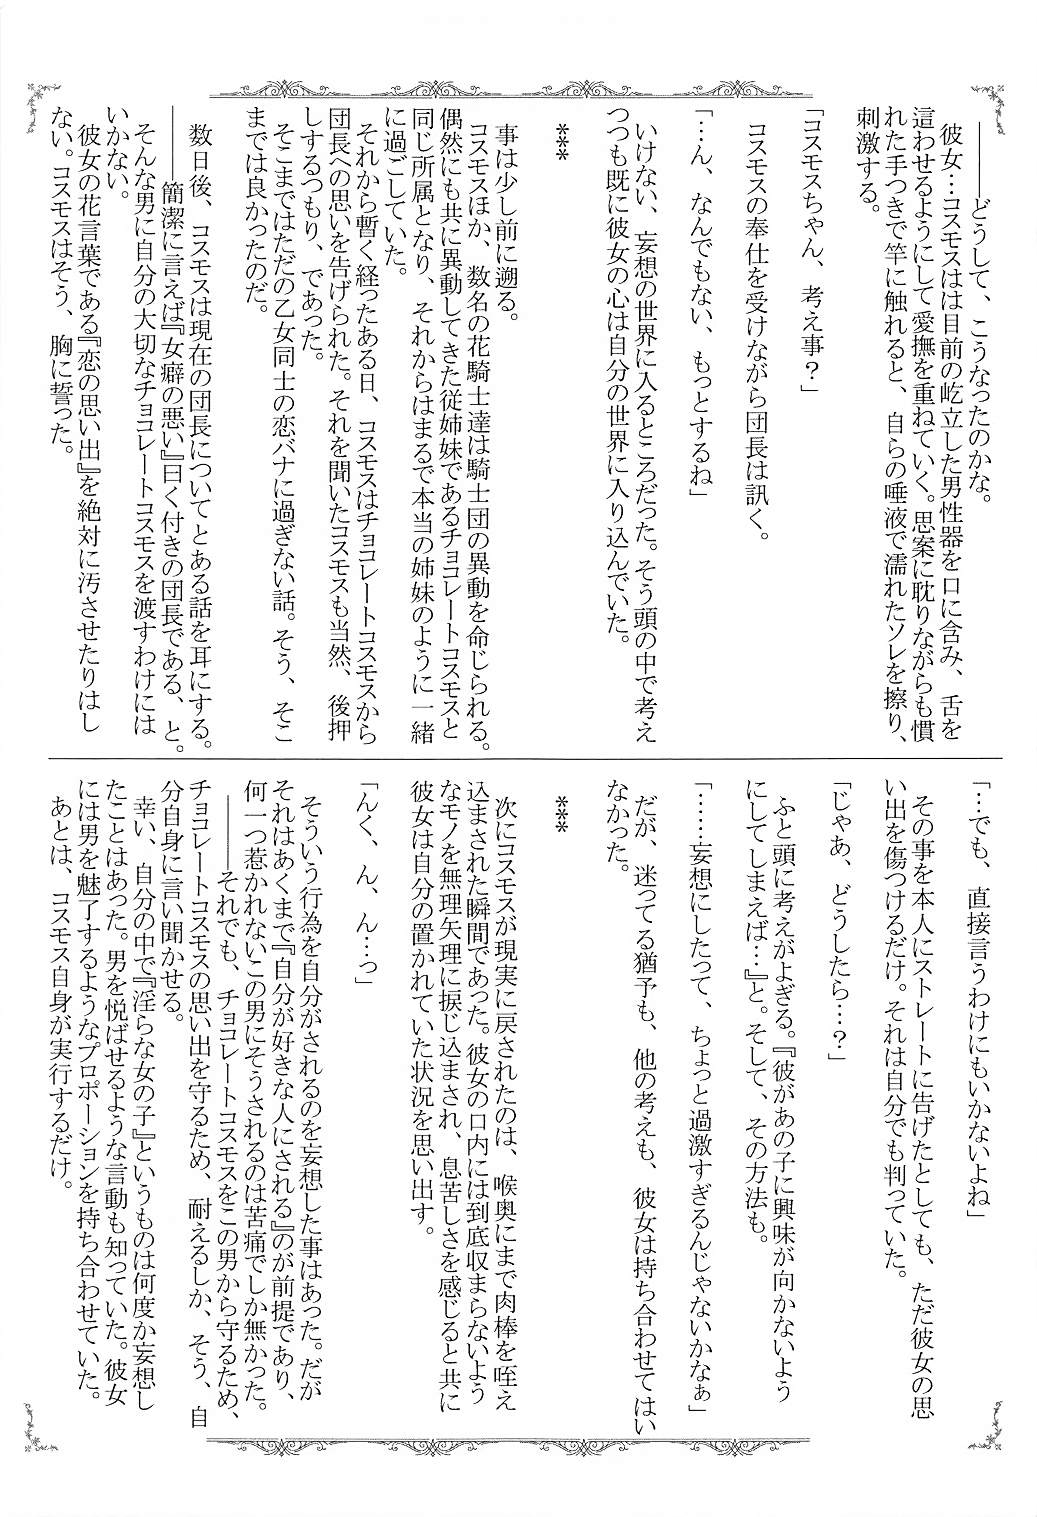 ――――どうして、こうなったのかな。
彼女…コスモスはは目前の屹立した男性器を口に含み、舌を
這わせるようにして愛撫を重ねていく。思案に耽りながらも慣
れた手つきで竿に触れると、自らの唾液で濡れたソレを擦り、
刺激する。
「コスモスちゃん、考え事？」
コスモスの奉仕を受けながら団長は訊く。
「…ん、なんでもない、もっとするね」
いけない、妄想の世界に入るところだった。そう頭の中で考え
つつも既に彼女の心は自分の世界に入り込んでいた。
***
事は少し前に遡る。
コスモスほか、数名の花騎士達は騎士団の異動を命じられる。
偶然にも共に異動してきた従姉妹であるチョコレートコスモスと
同じ所属となり、それからはまるで本当の姉妹のように一緒
に過ごしていた。
それから暫く経ったある日、コスモスはチョコレートコスモスから
団長への思いを告げられた。それを聞いたコスモスも当然、後押
しするつもり、であった。
そこまではただの乙女同士の恋バナに過ぎない話。そう、そこ
までは良かったのだ。
数日後、コスモスは現在の団長についてとある話を耳にする。
――簡潔に言えば『女癖の悪い』曰く付きの団長である、と。
そんな男に自分の大切なチョコレートコスモスを渡すわけには
いかない。
彼女の花言葉である『恋の思い出』を絶対に汚させたりはし
ない。コスモスはそう、胸に誓った。
「…でも、直接言うわけにもいかないよね」
その事を本人にストレートに告げたとしても、ただ彼女の思
い出を傷つけるだけ。それは自分でも判っていた。
「じゃあ、どうしたら…？」
ふと頭に考えがよぎる。『彼があの子に興味が向かないよう
にしてしまえば…』と。そして、その方法も。
「……妄想にしたって、ちょっと過激すぎるんじゃないかなぁ」
だが、迷ってる猶予も、他の考えも、彼女は持ち合わせてはい
なかった。
***
次にコスモスが現実に戻されたのは、喉奥にまで肉棒を咥え
込まされた瞬間であった。彼女の口内には到底収まらないよう
なモノを無理矢理に捩じ込まされ、息苦しさを感じると共に
彼女は自分の置かれていた状況を思い出す。
「んく、ん、ん…っ」
そういう行為を自分がされるのを妄想した事はあった。だが
それはあくまで『自分が好きな人にされる』のが前提であり、
何一つ惹かれないこの男にそうされるのは苦痛でしか無かった。
――――それでも、チョコレートコスモスをこの男から守るため、
チョコレートコスモスの思い出を守るため、耐えるしか、そう、自
分自身に言い聞かせる。
幸い、自分の中で『淫らな女の子』というものは何度か妄想し
たことはあった。男を悦ばせるような言動も知っていた。彼女
には男を魅了するようなプロポーションを持ち合わせていた。
あとは、コスモス自身が実行するだけ。